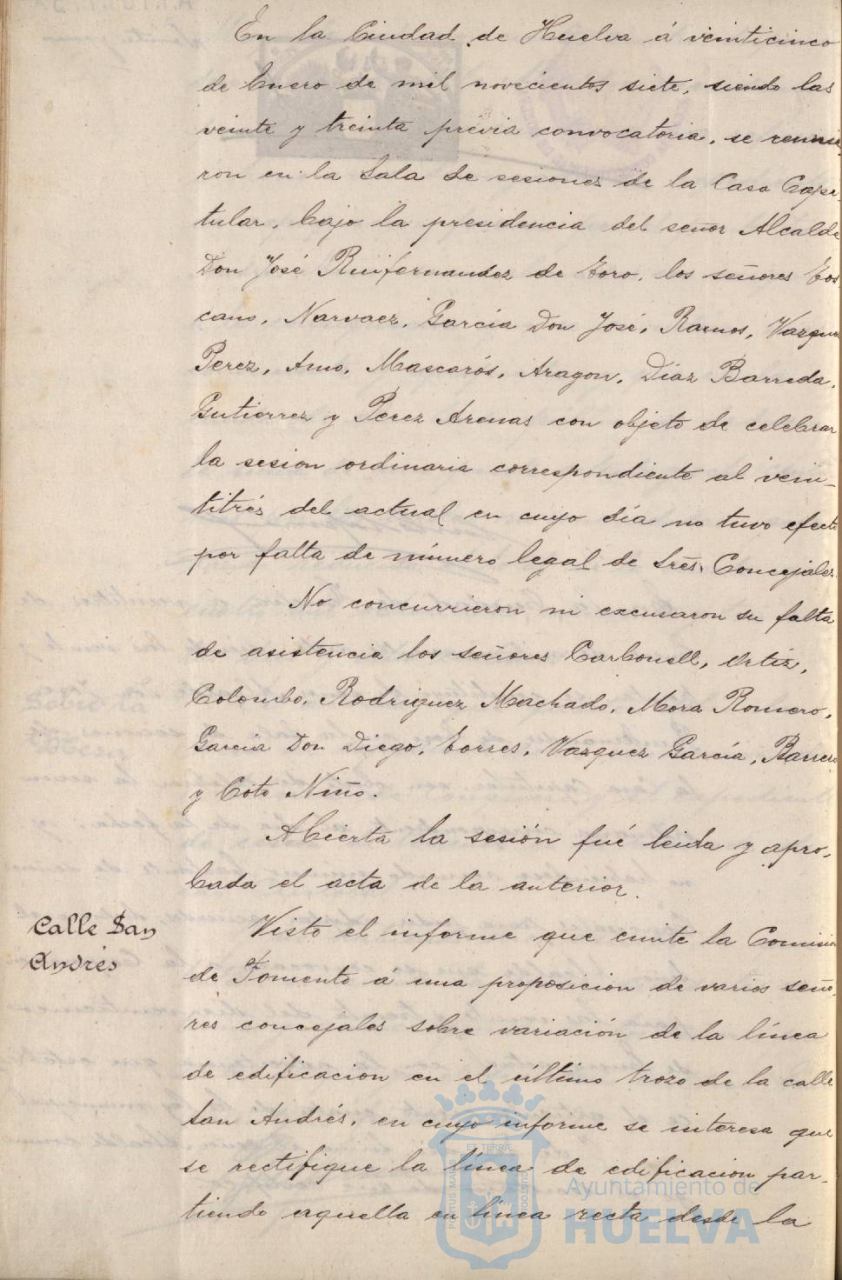 En la Ciudad de Huelva á veinticinco
de Enero de mil novecientos siete, siendo las
veinte y treinta previa convocatoria, se reunie-
ron en la Sala de sesiones de la Casa Capi-
tular, bajo la presidencia del señor Alcalde
Don José Ruifernandez de Toro, los señores Tos-
cano, Narvaez, García Don José, Ramos, Vazquez
Perez, Amo, Mascarós, Aragon, Diaz Barreda,
Gutierrez y Perez Arenas con objeto de celebrar
la sesion ordinaria correspondiente al vein-
titrés del actual en cuyo día no tuvo efecto
por falta de número legal de Srēs. Concejales.
No concurrieron ni excusaron su falta
de asistencia los señores Carbonell, Ortiz,
Colombo, Rodriguez Machado, Mora Romero,
Garcia Don Diego, Torres, Vazquez García, Barrera
y Coto Niño.
Abierta la sesión fué leida y apro-
bada el acta de la anterior.
Calle San
Andrés
Visto el informe que emite la Comisión
de Fomento á una proposicion de varios seño-
res concejales sobre variación de la línea
de edificacion en el último trozo de la calle
San Andrés, en cuyo informe se interesa que
se rectifique la línea de edificacion par-
tiendo aquella en línea recta desde la
Ayuntamiento de
HUELVA